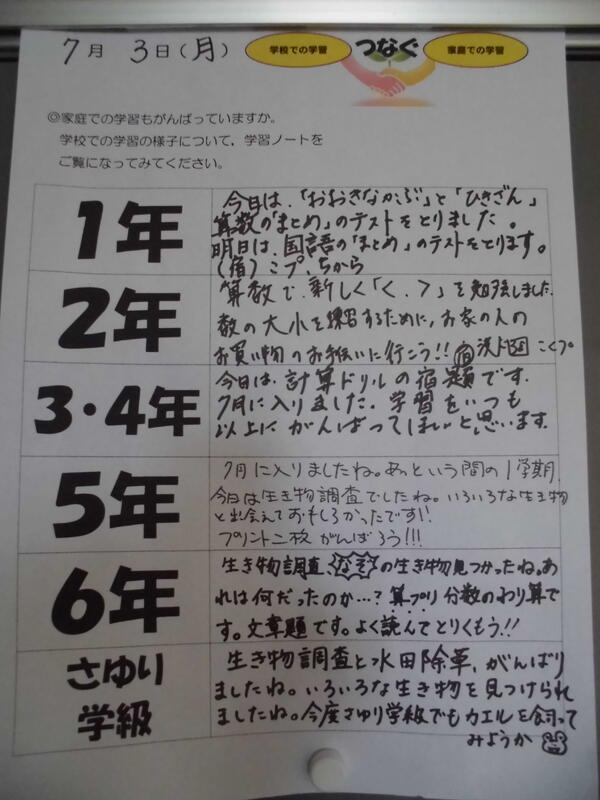 7月 3日(月)
学校での学習 つなぐ 家庭での学習
◎家庭での学習もがんばっていますか。
学校での学習の様子について，学習ノートを
ご覧になってみてください。
1年
今日は、「おおきなかぶ」と「ひきざん」
算数の「まとめ」のテストをとりました。
明日は、国語の「まとめ」のテストをとります。
(宿)こプ、ちから
2年
算数で、新しく「<，>」を勉強しました。
数の大小を練習するために、お家の人の
お買い物のお手伝いに行こう!! 宿 こくプ
3・4年
今日は、計算ドリルの宿題です。
7月に入りました。学習をいつも
以上にがんばってほしいと思います。
5年
7月に入りましたね。あっという間の1学期。
今日は生き物調査でしたね。いろいろな生き物
と出会えておもしろかったです!!
プリント二枚 がんばろう!!!
6年
生き物調査、なぞの生き物見つかったね。あ
れは何だったのか…? 算プリ 分数のわり算で
す。文章題です。よく読んでとりくもう!!
さゆり
学級
生き物調査と水田除草、がんばり
ましたね。いろいろな生き物を見つけられ
ましたね。今度さゆり学級でもカエルを飼って
みようか